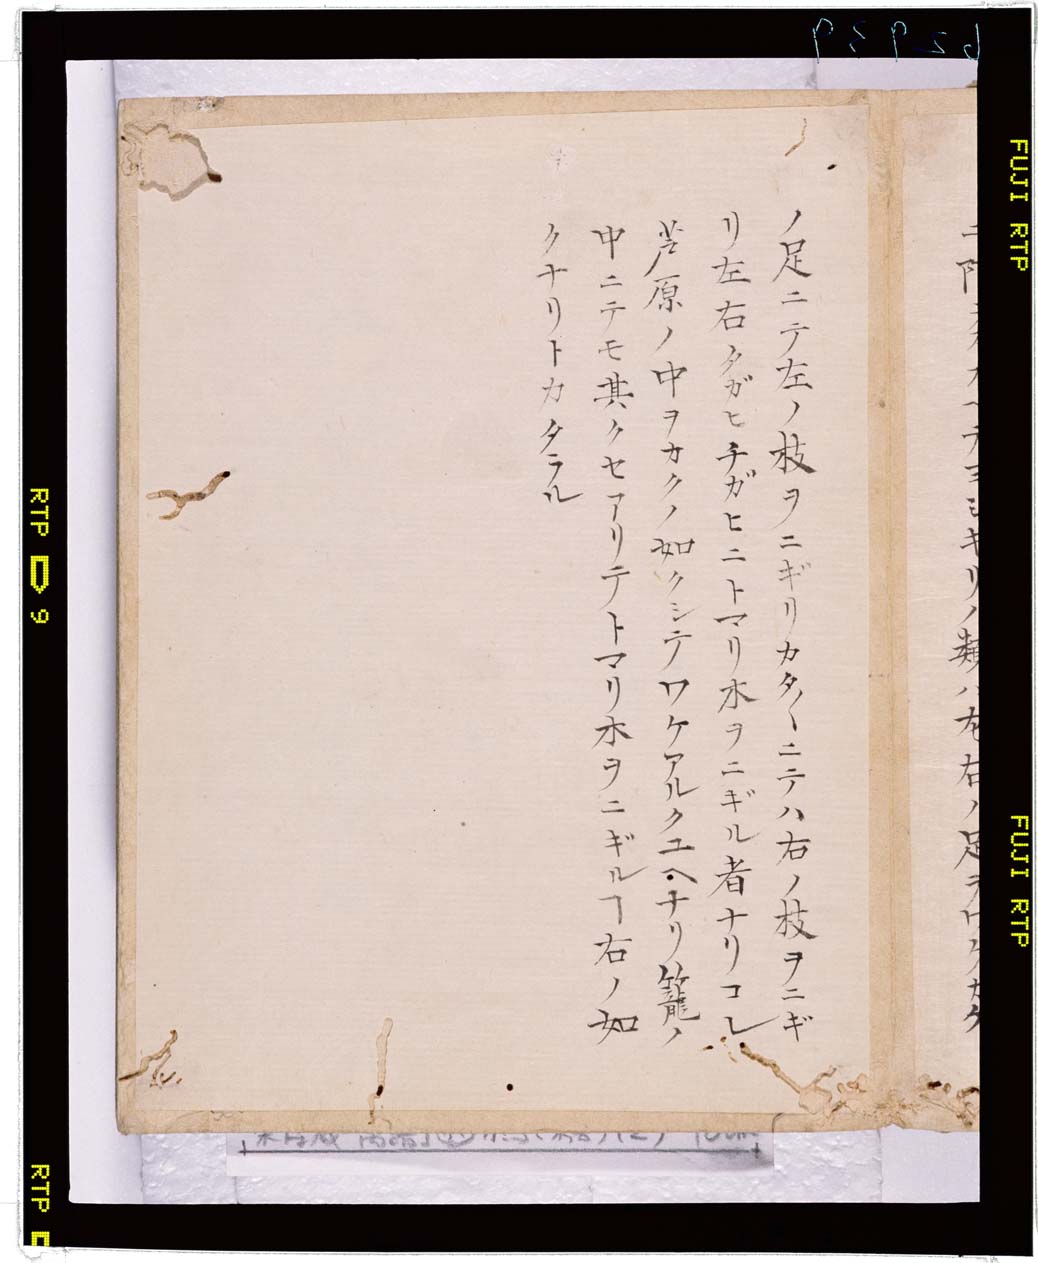 ノ足ニテ左ノ枝ヲニギリカタ〱ニテハ右ノ枝ヲニギ
リ左右タガヒチガヒニトマリ木ヲニギル者ナリコレ
芦原ノ中ヲカクノ如クシテワケアルクユヘナリ籠ノ
中ニテモ其クセアリテトマリ木ヲニギルヿ右ノ如
クナリトカタラル
FUJI RTP
FUJI RTP
RTP
9
RTP